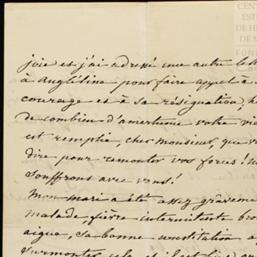 CEN
EST
DE H
DE M
FUN
joie et j'ai adressé une autre le
à Angélina pour faire appel à
courage et à sa résignation,
de combien d'amertume votre vi
est remplie, cher monsieur, que v
dire pour remonter vos forces!
Souffrons avec vous!
Mon mari a été assez graveme
malade fièvre intermittente bro
aigue, sa bonne constitution a
surmonter cela et